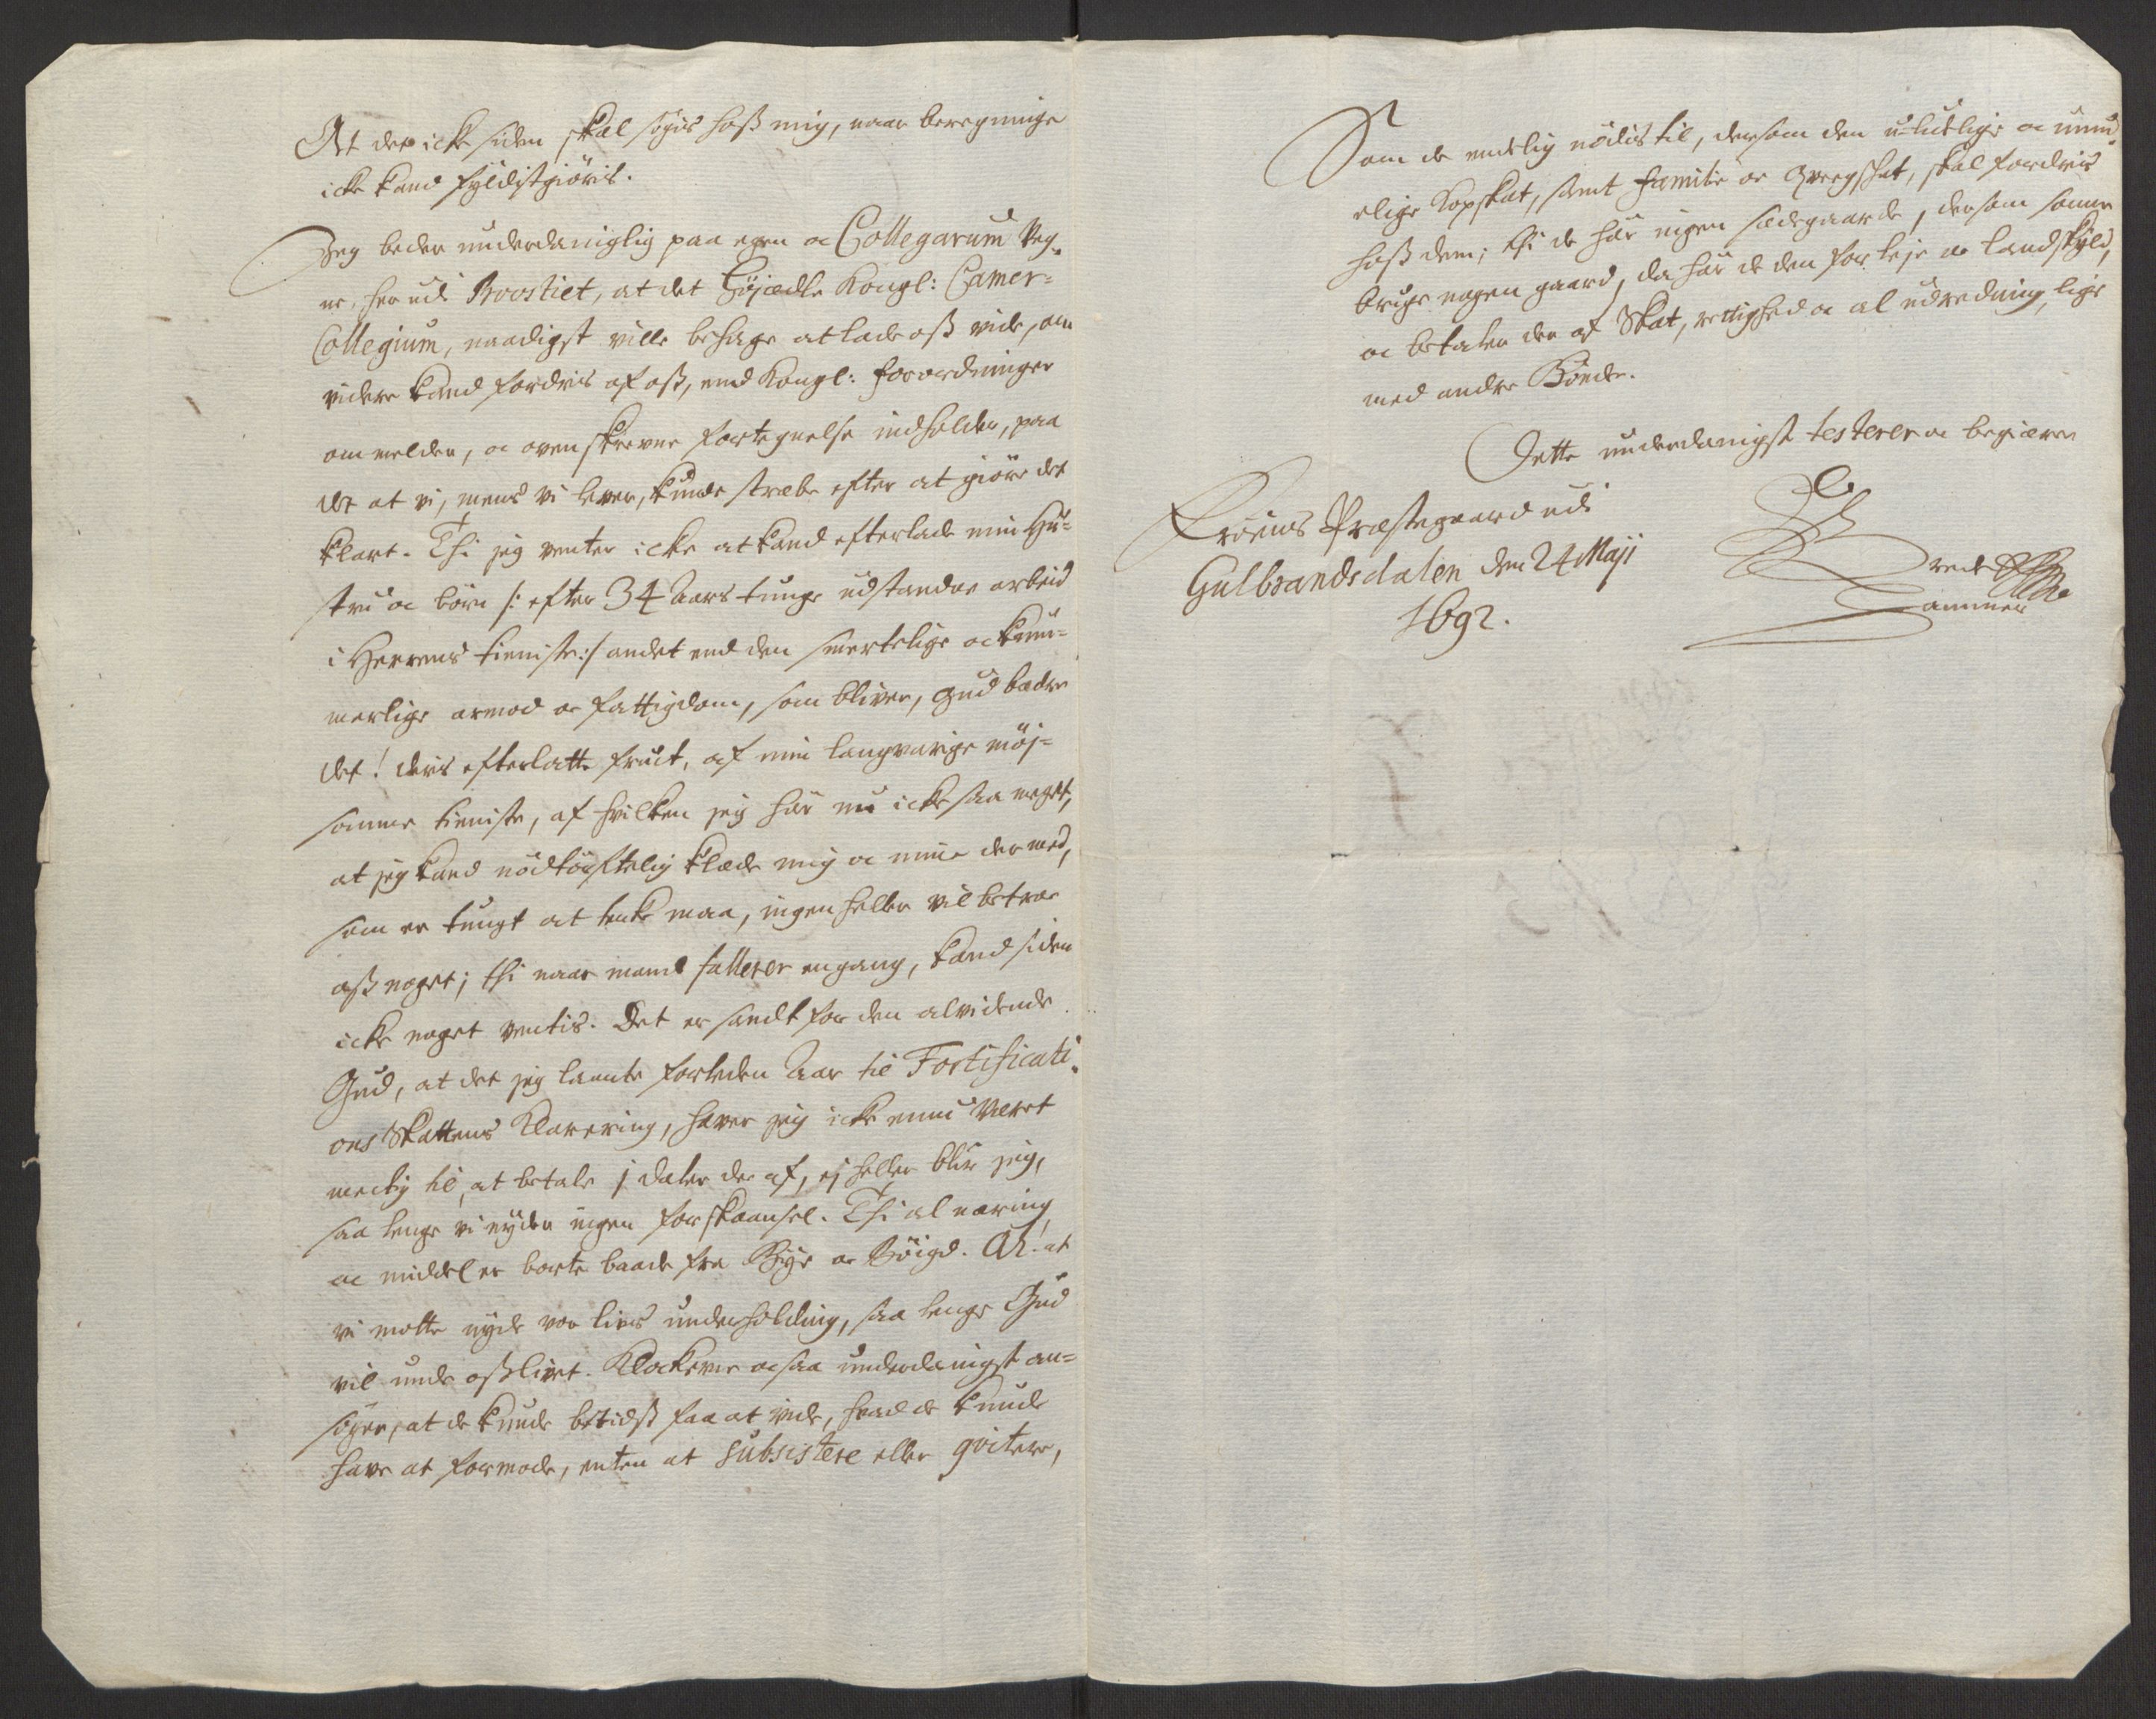 At det icke siden skal søgis hoss mig, naar beregninge
icke kand fyldistgiøris.
Jeg beder underdanigligt paa egen oc Collegarum Veg-
ne, her udi Provstiet, at det høyædle Kongl: Camer-
Collegium, naadigst ville behage at lade oss vide, om
videre kand fordris af oss, end Kongl: forordninger
ommelder, oc ovenskrevne fortegnelse indholder, paa
det at vi, mens vi lever, kunde stræbe efter at giøre det
klart. Thi jeg venter icke at kand efterlade min Hu-
stru oc børn /: efter 34 Aars tunge udstandne arbeid
i Herrens tieniste :/ andet end den smertelige oc kum-
merlige armod oc fattigdom, som bliver, Gud bædre
det! deris efterlatte fruct, af min langvarige møj-
somme tieniste, af hvilken jeg har nu icke saa meget,
at jeg kand nødtørftelig klæde mig oc mine der med,
som er tungt at tenke paa, ingen heller vil betroe
oss noget; thi naar mand fallerer engang, kand siden
icke noget ventis. Det er sandt for den alvidende
Gud, at det jeg laante forleden Aar til Fortificati-
ons Skattens Klarering, haver jeg icke ennu været
mectig til, at betale 1 daler der af, ej heller blir jeg,
saa lenge vi nyder ingen forskaansel. Thi al næring
oc middel er borte baade fra Bye oc Bøigd. Ah! at
vi motte nyde vor livs underholding, saa lenge Gud
vil unde oss livet. Klockerne ocsaa underdanigst an-
søger, at de kunde betids faa at vide, hvad de kunde
have at formode, enten at subsistere eller qvitere,
Som de endelig nødis til, dersom den u-lidelige oc umu-
elige Kopskat, samt familie oc qvegskat, skal fordris
hoss dem; thi de har ingen sædegaarde, dersom somme
bruge nogen gaard, da har de den for leje oc landskyld,
oc betaler der af Skat, rettighed oc al udredning, lige
med andre Bønder.
Dette underdanigst testerer oc begiærer
Froens Præstegaard udi
Gulbrandsdalen den 24 Maji
1692.